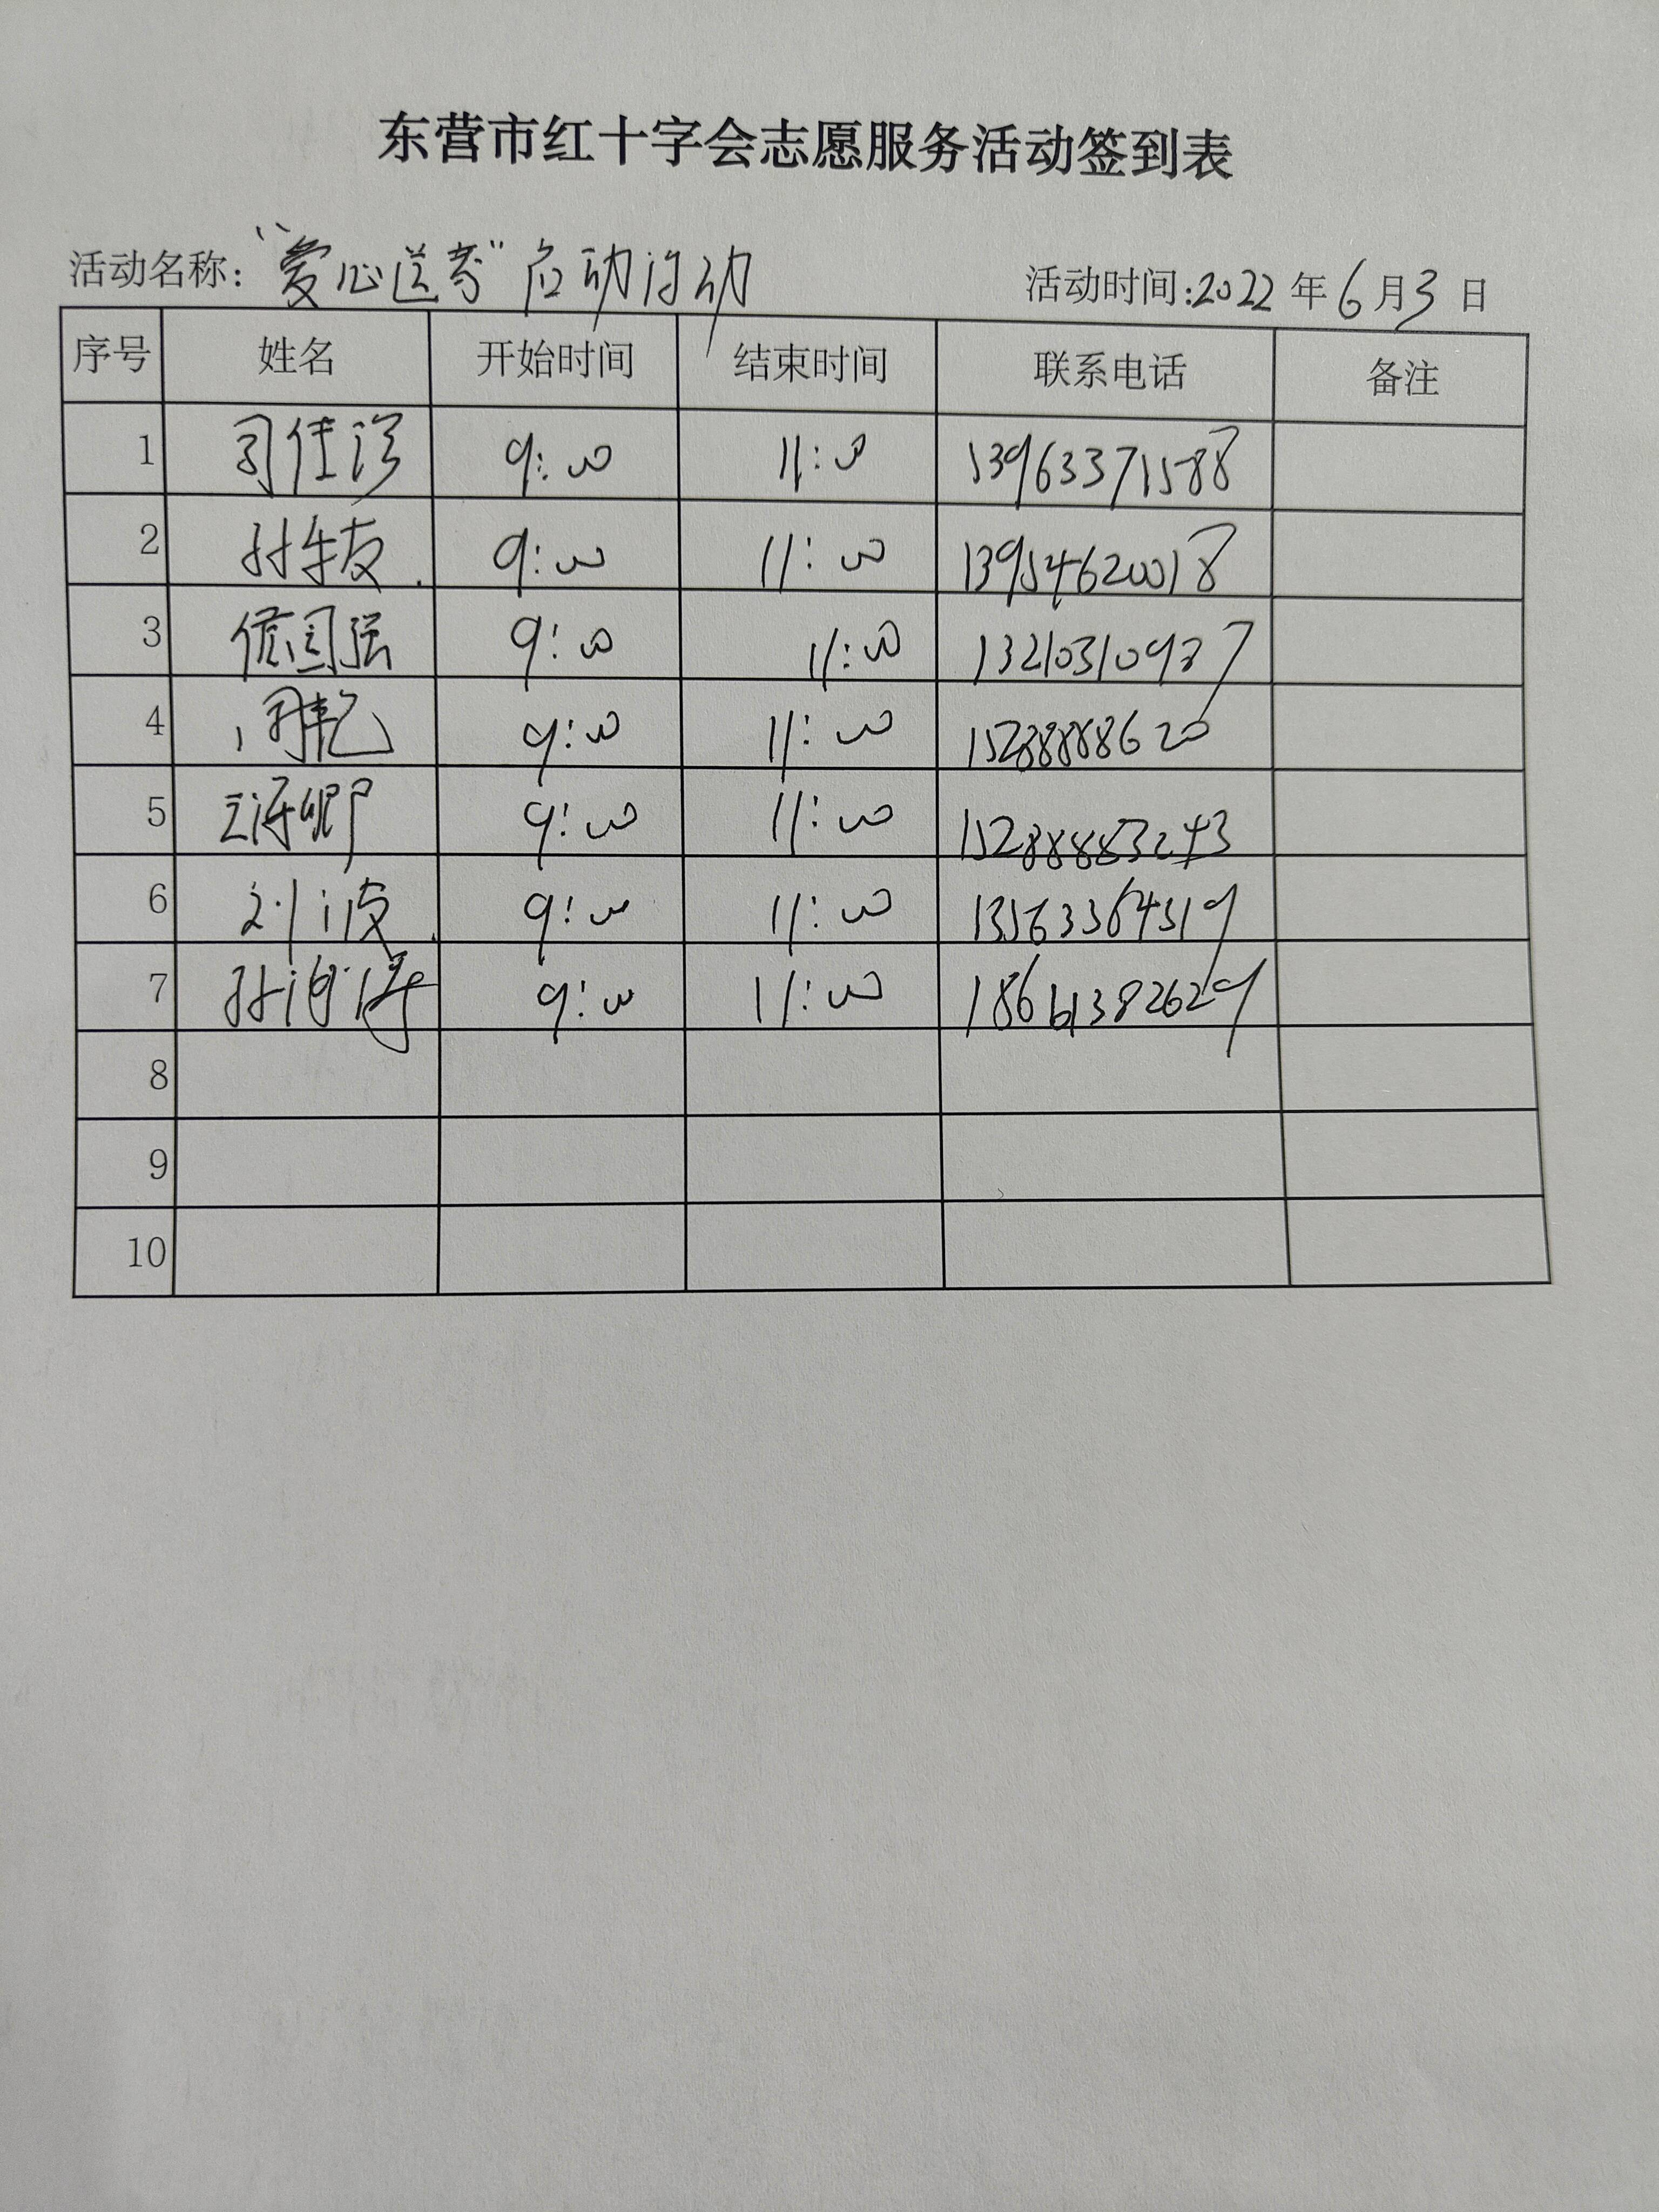 东营市红十字会志愿服务活动签到表
活动名称:“爱心送考”启动活动 活动时间:2022年6月3日
序号 姓名 开始时间 结束时间 联系电话 备注
1 9:00 11:00 13963371588
2 9:00 11:00 13954620018
3 国强 9:00 11:00 13210310927
4 9:00 11:00 15288888620
5 9:00 11:00 15288883243
6 刘波 9:00 11:00 13563364519
7 孙 9:00 11:00 18661382629
8
9
10